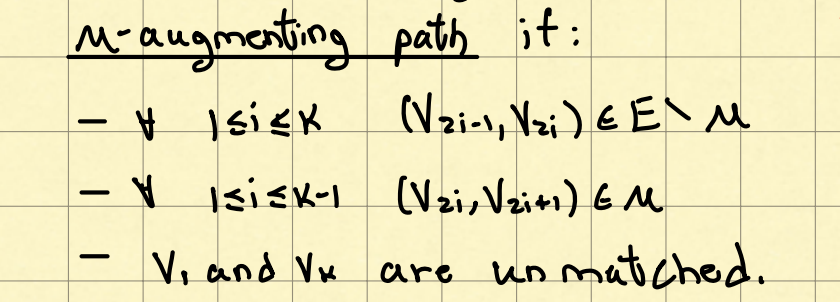 M-augmenting path if:
- ∀ 1≤i≤k (V₂ᵢ₋₁, V₂ᵢ) ∈ E \ M
- ∀ 1≤i≤k-1 (V₂ᵢ, V₂ᵢ₊₁) ∈ M
- V₁ and Vₖ are unmatched.